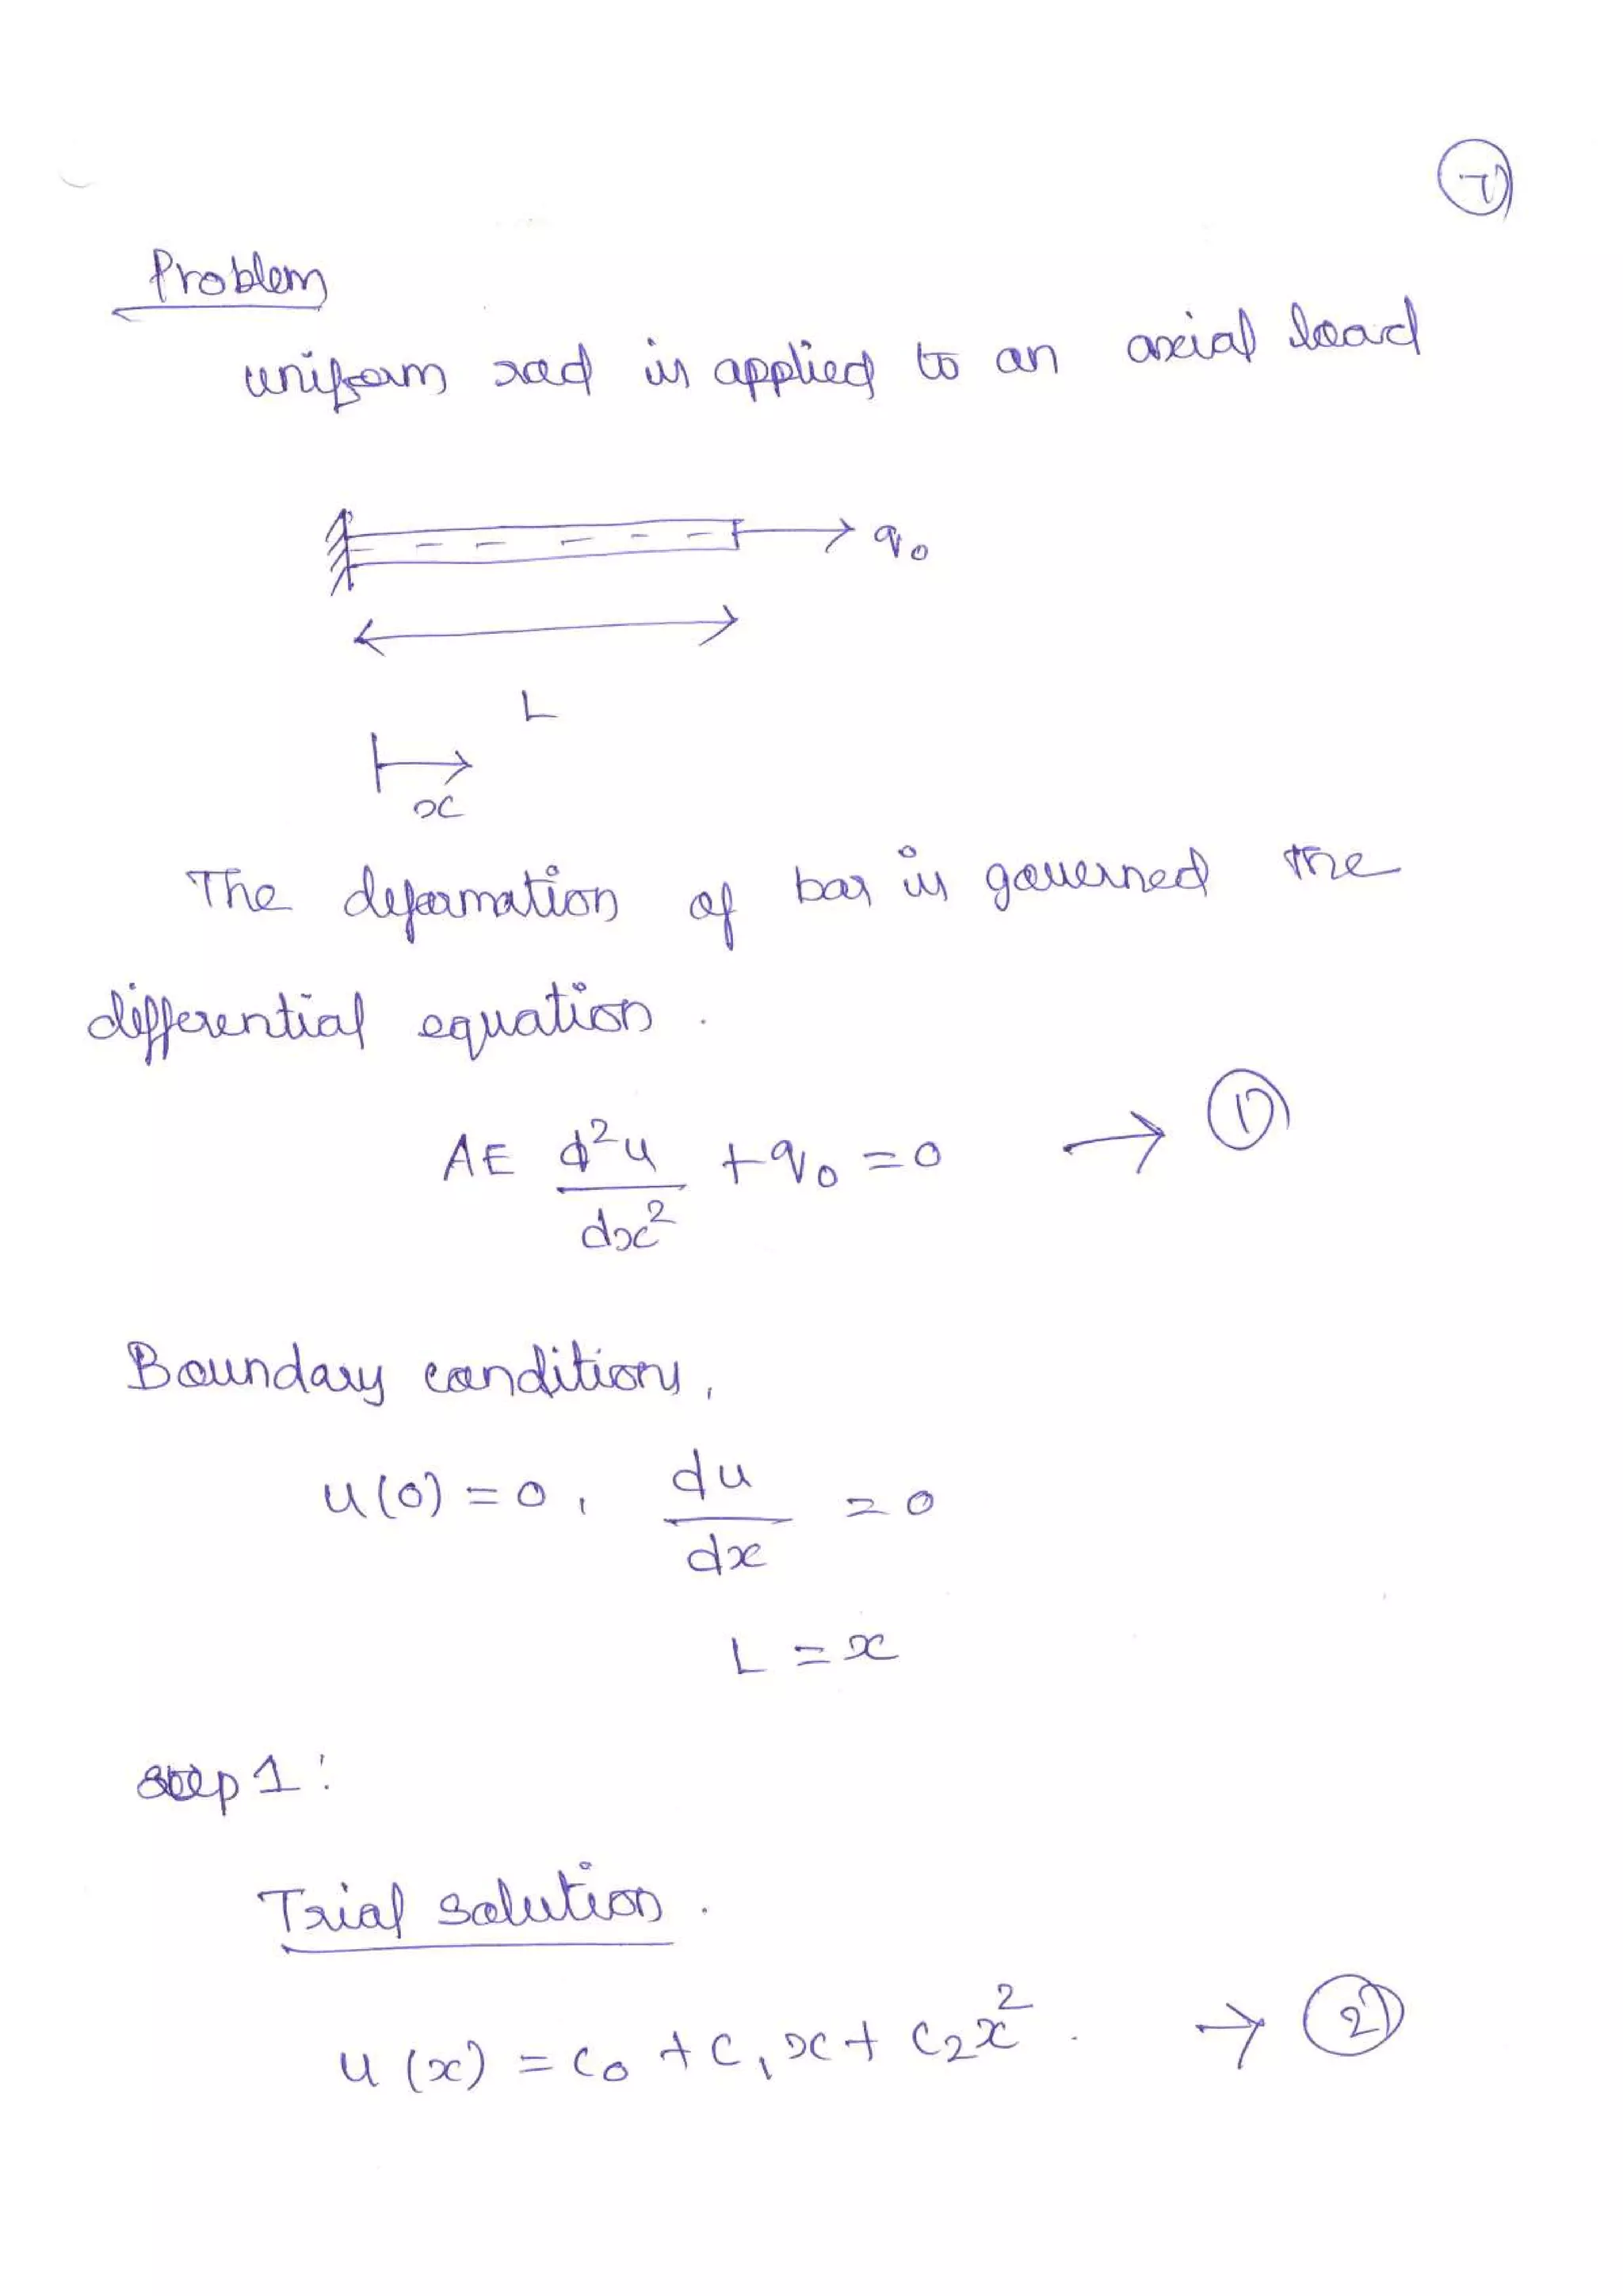 7
Problem
uniform rod is applied to an axial load
q₀
L
x
The deformation of bar is governed the
differential equation.
AE d²u/dx² + q₀ = 0 → ①
Boundary conditions,
u(0) = 0, du/dx = 0
L = x
step 1:
Trial solution.
u(x) = c₀ + c₁x + c₂x². → ②